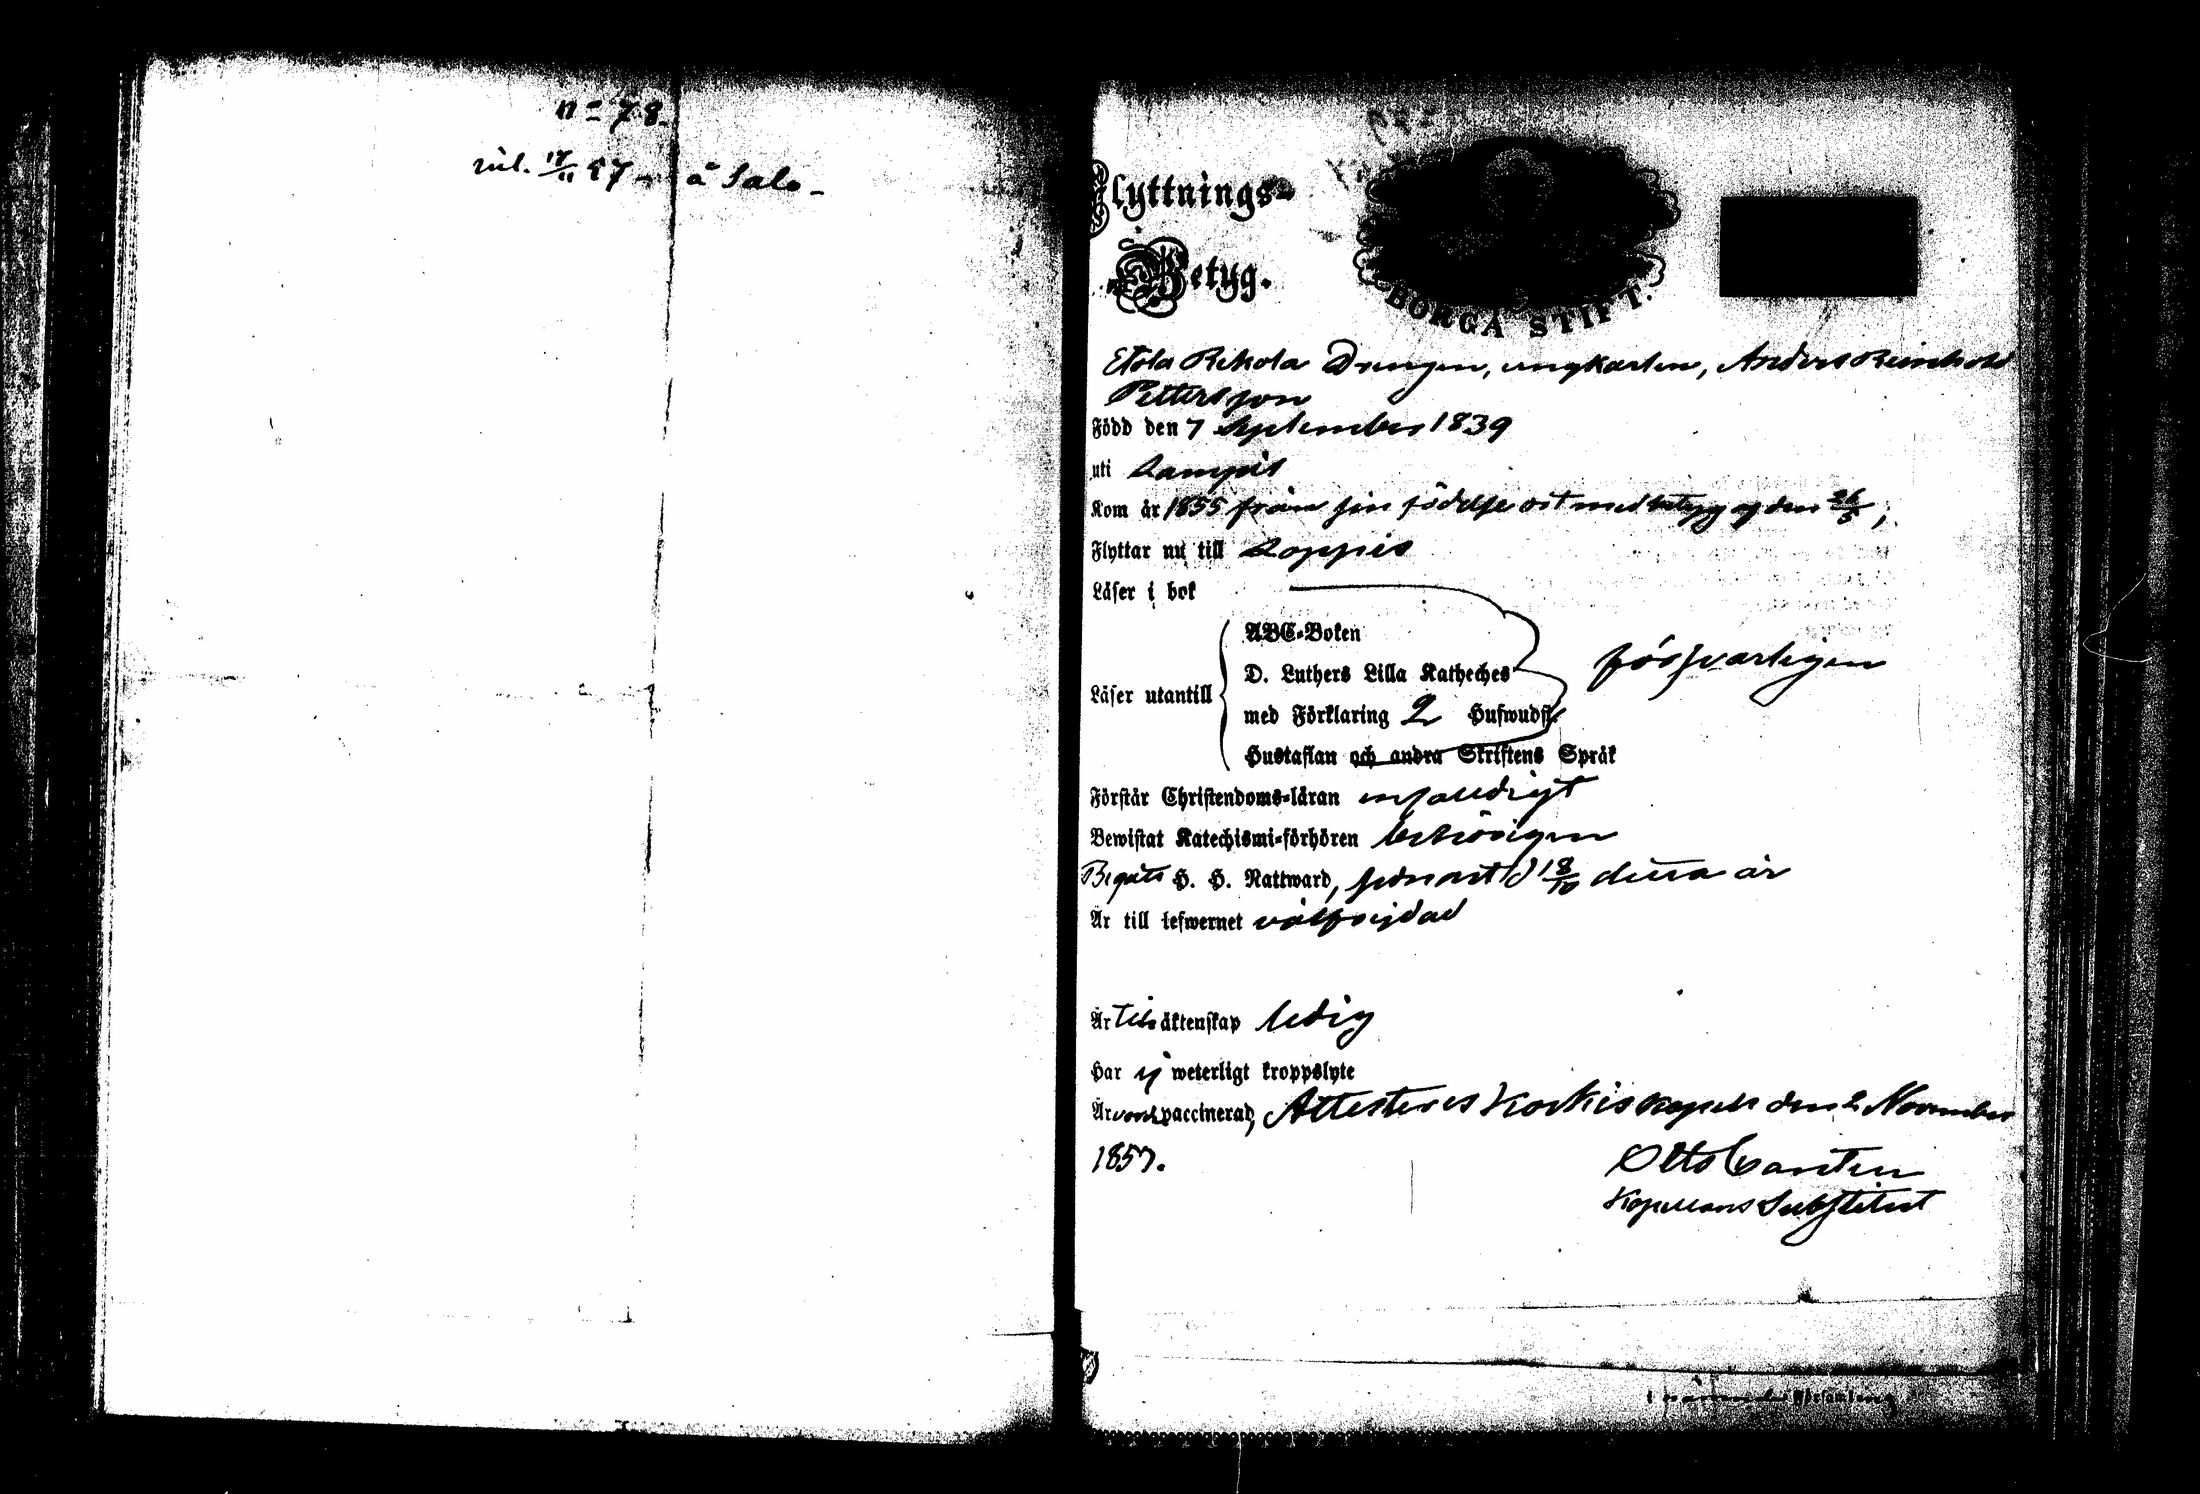 n = 78.
inl. 17/11 57 - å Salo -
Flyttnings-
Betyg.
BORGÅ STIFT.
Etola Rekola Drengen, ungkarlen, Anders Reinhold
Pettersson
Född den 7 September 1839
uti Lampis
Kom år 1855 från sin födelse ort med betyg af den 26/5,
Flyttar nu till Loppis
Läser i bok
ABC-Boken
D. Luthers Lilla Katheches
försvarligen
Läser utantill
med Förklaring 2 Hufwudst.
Hustaflan och andra Skriftens Språk
Förstår Christendoms-läran enfaldigt
Bewistat Katechismi-förhören behörigen
Begått H. H. Nattward, senast d. 18/10 detta år
Är till lefwernet välfrejdad
Är till äktenskap ledig
Har ej weterligt kroppslyte
Är vaccinerad, Attesteras Korkis kapell den 2 November
1857.
Otto
Kapellans Substitut
församling